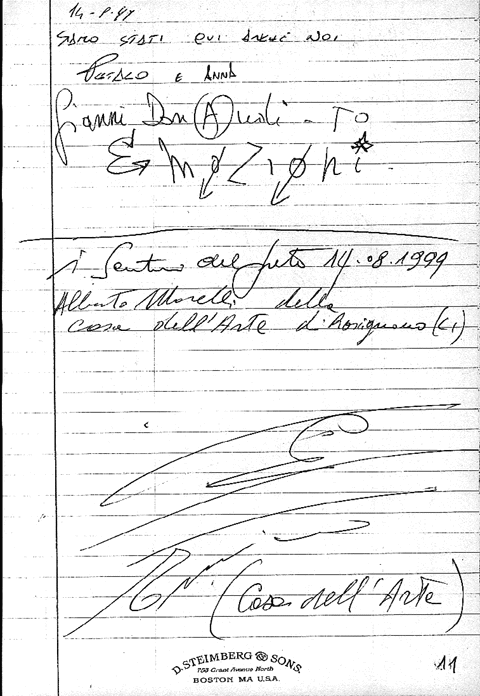 SIAMO STATI QUI ANCHE NOI
E ANNA
Gianni Don(A)
EmOZiONi
Sentiero del 14.08.1999
Alberto Morelli della
Casa dell'Arte di Rosignano (LI)
(Casa dell'Arte)
D. STEIMBERG & SONS.
753 Grant Avenue North
BOSTON MA U.S.A.
11